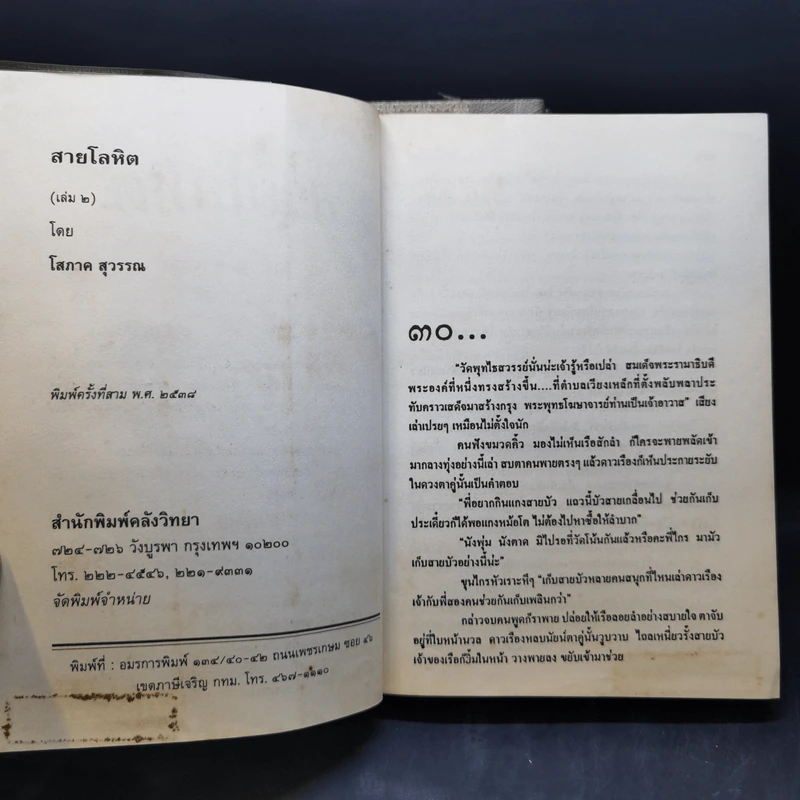 สายโลหิต
(เล่ม ๒)
โดย
โสภาค สุวรรณ
พิมพ์ครั้งที่สาม พ.ศ. ๒๕๓๘
สำนักพิมพ์คลังวิทยา
๗๒๔-๗๒๖ วังบูรพา กรุงเทพฯ ๑๐๒๐๐
โทร. ๒๒๒-๔๕๔๖, ๒๒๑-๙๓๓๑
จัดพิมพ์จำหน่าย
พิมพ์ที่ : อมรการพิมพ์ ๑๓๔/๔๐-๔๒ ถนนเพชรเกษม ซอย ๔๖
เขตภาษีเจริญ กทม. โทร. ๔๖๗-๑๑๑๐
๓๐...
"วัดพุทไธสวรรย์นั่นน่ะเจ้ารู้หรือเปล่า สมเด็จพระรามาธิบดี
พระองค์ที่หนึ่งทรงสร้างขึ้น....ที่ตำบลเวียงเหล็กที่ตั้งพลับพลาประ
ทับคราวเสด็จมาสร้างกรุง พระพุทธโฆษาจารย์ท่านเป็นเจ้าอาวาส" เสียง
เล่าเปรยๆ เหมือนไม่ตั้งใจนัก
คนฟังขมวดคิ้ว มองไม่เห็นเรือสักลำ ก็ใครจะพายพลัดเข้า
มากลางทุ่งอย่างนี้เล่า สบตาคนพายตรงๆ แล้วดาวเรืองก็เห็นประกายระยับ
ในดวงตาคู่นั้นเป็นคำตอบ
"พี่อยากกินแกงสายบัว แถวนี้บัวสายเกลื่อนไป ช่วยกันเก็บ
ประเดี๋ยวก็ได้พอแกงหม้อโต ไม่ต้องไปหาซื้อให้ลำบาก"
"นังพุ่ม นังตาด มิไปรอที่วัดโน้นกันแล้วหรือคะพี่ไกร มามัว
เก็บสายบัวอย่างนี้น่ะ"
ขุนไกรหัวเราะหึๆ "เก็บสายบัวหลายคนสนุกที่ไหนเล่าดาวเรือง
เจ้ากับพี่สองคนช่วยกันเก็บเพลินกว่า"
กล่าวจบคนพูดก็ราพาย ปล่อยให้เรือลอยลำอย่างสบายใจ ตาจับ
อยู่ที่ใบหน้านวล ดาวเรืองหลบนัยน์ตาคู่นั้นวูบวาบ ไถลเหนี่ยวรั้งสายบัว
เจ้าของเรือก็อิ่มในหน้า วางพายลง ขยับเข้ามาช่วย